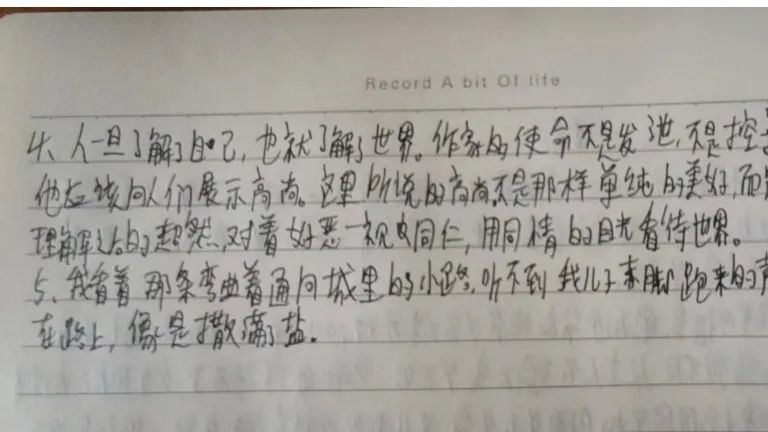 Record A bit Of life
4、人一旦了解了自己,也就了解了世界。作家的使命不是发泄,不是控
他应该向人们展示高尚。这里所说的高尚不是那样单纯的美好,而
理解之后的超然,对善恶一视同仁,用同情的目光看待世界。
5、我看着那条弯曲着通向城里的小路,听不到我儿子赤脚跑来的
在路上,像是撒满了盐。